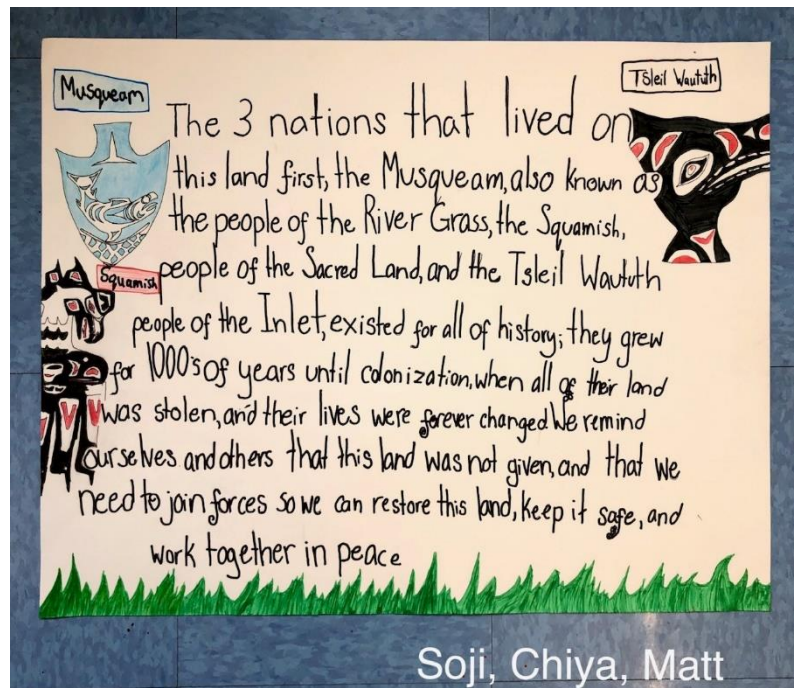 Musqueam
Tsleil Waututh
The 3 nations that lived on
this land first, the Musqueam, also known as
the people of the River Grass, the Squamish,
Squamish
people of the Sacred Land, and the Tsleil Waututh
people of the Inlet, existed for all of history; they grew
for 1000's of years until colonization, when all of their land
was stolen, and their lives were forever changed. We remind
ourselves and others that this land was not given, and that we
need to join forces so we can restore this land, keep it safe, and
work together in peace
Soji, Chiya, Matt